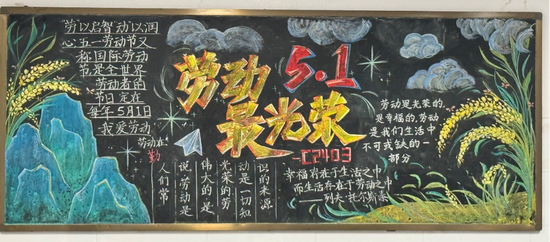 劳以启智 动以润
心五一劳动节又
称国际劳动
节是全世界
劳动者的
节日定在
每年5月1日
我爱劳动
劳动在:
勤
5.1
劳动
最光荣
—C2403
人们常
说劳动是
伟大的是
光荣的劳
动是一切知
识的来源
劳动是光荣的,
是幸福的,劳动
是我们生活中
不可或缺的一
部分
幸福存在于生活之中
而生活存在于劳动之中
——列夫·托尔斯泰